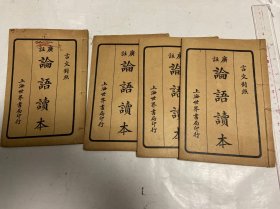 言文對照
廣註
論語讀本
上海世界書局印行
廣註
論語讀本
上海世界書局印行
廣註
論語讀本
上海世界書局印行
言文對照
廣註
論語讀本
上海世界書局印行